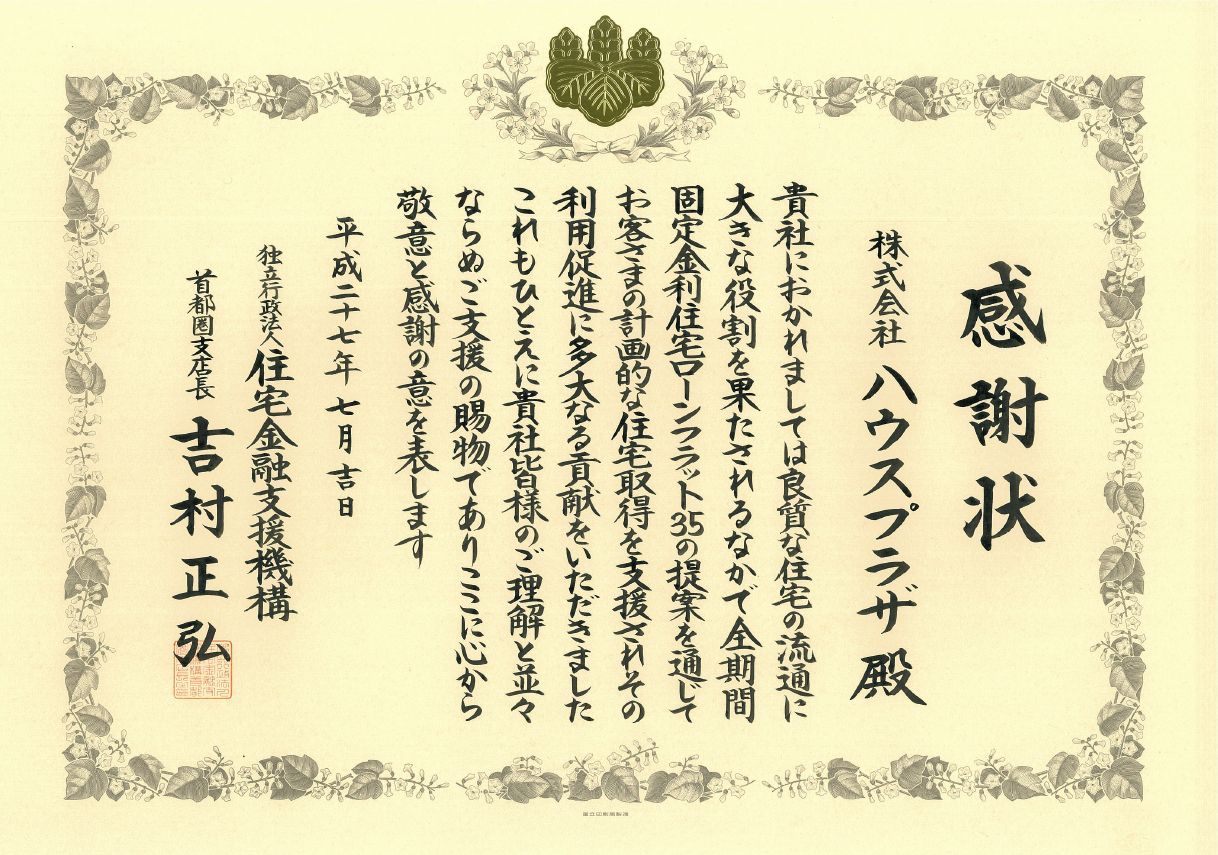 感謝状
株式会社 ハウスプラザ 殿
貴社におかれましては良質な住宅の流通に
大きな役割を果たされるなかで全期間
固定金利住宅ローンフラット35の提案を通じて
お客さまの計画的な住宅取得を支援されその
利用促進に多大なる貢献をいただきました
これもひとえに貴社皆様のご理解と並々
ならぬご支援の賜物でありここに心から
敬意と感謝の意を表します
平成二十七年七月吉日
独立行政法人 住宅金融支援機構
首都圏支店長 吉村正弘
国立印刷局製造